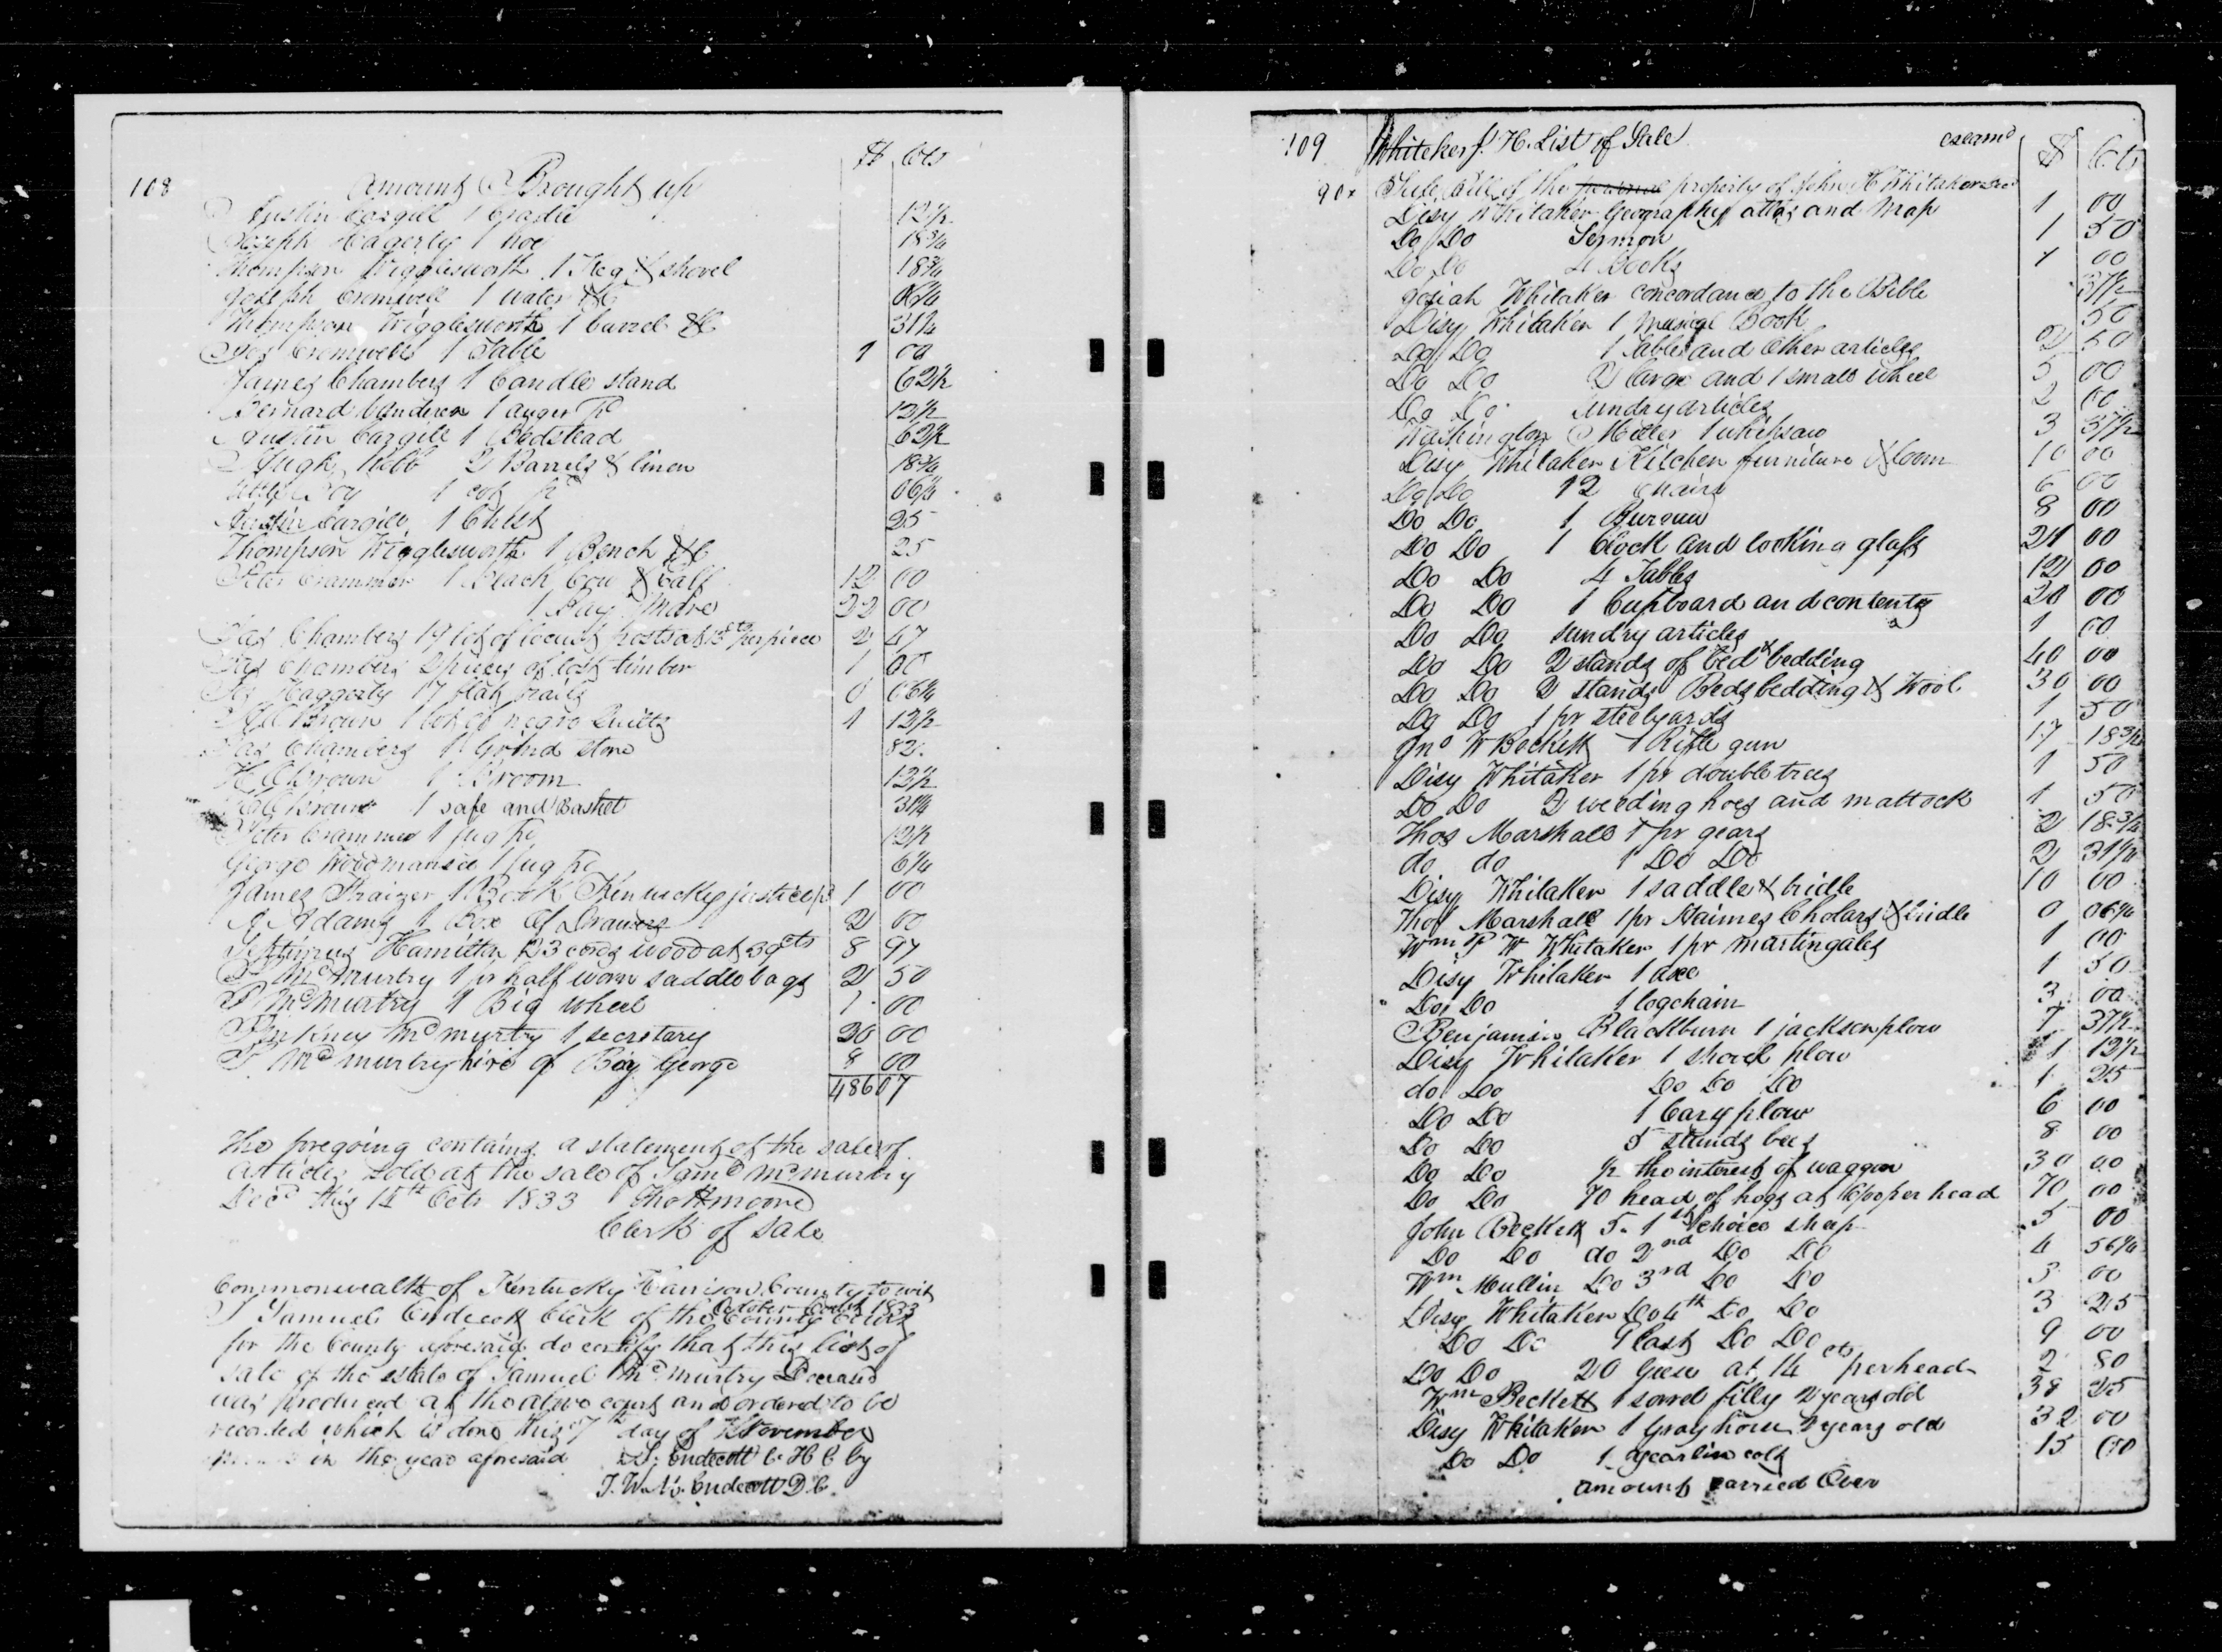 108
$ Cts
Amount Brought up
Austin Cargill 1 Cradle 12½
Joseph Hagerty 1 hoe 18¾
Thompson Wigglesworth 1 Keg & shovel 18¾
Joseph Cromwell 1 water &C 06¼
Thompson Wigglesworth 1 barrel &C 31¼
Jos Cromwell 1 Table 1 00
James Chambers 1 Candle stand 62½
Bernard 1 auger pd 12½
Austin Cargill 1 Bedstead 62½
Hugh Kebb 2 Barrels & linen 18¾
1 pd 06¼
Austin Cargill 1 Chest 25
Thompson Wigglesworth 1 Bench &C 25
Peter Crammer 1 Black Cow & Calf 12 00
1 Bay Mare 22 00
Jas Chambers 19 lot of locust posts at 13cts per piece 2 47
Jas Chambers 2 pieces of lost timber 1 00
Jos Haggerty 17 flat rails 0 06¼
Brown 1 lot of negro quilts 1 12½
Jas Chambers 1 Grind stone 82
H C Brown 1 Broom 12½
Brown 1 safe and Basket 31¼
Peter Crammer 1 jug pd 12½
George Woodmansee 1 jug pd 6¼
James Fraizer 1 Book Kentucky justice pd 1 00
Adams 1 Box Of Drawers 2 00
Septimus Hamilton 23 cords wood at 39cts 8 97
P Mcmurtry 1 pr half worn saddle bags 2 50
P Mcmurtry 1 Big wheel 1 00
Pinkney Mcmurtry 1 secretary 20 00
P Mcmurtry hire of Boy George 8 00
486 07
The foregoing contains a statement of the sale of
articles sold at the sale of Samd Mcmurtry
Decd this 12th Octr 1833 Tho H moore
Clerk of sale
Commonwealth of Kentucky Harrison County to wit
October Court 1833
I Samuel Endecott Clerk of the County Court
for the County aforesaid do certify that this list of
sale of the estate of Samuel Mcmurtry Deceased
was produced at the above court and ordered to be
recorded which is done this 7th day of November
in the year aforesaid S. Endecott C. H C by
J. W. N. Endecott D C.
109 Whitaker J. H. List of Sale examd $ Cts
90x Sale Bill of the personal property of John H Whitaker decd
Disy Whitaker Geography atlas and Map 1 00
Do Do Sermon 1 50
Do Do 4 Books 1 00
Josiah Whitaker concordance to the Bible 37½
Disy Whitaker 1 musical Book 50
Do Do 1 Table and other articles 2 50
Do Do 2 large and 1 small wheel 5 00
Do Do sundry articles 2 00
Washington Miller 1 whipsaw 3 37½
Disy Whitaker Kitchen furniture & loom 10 00
Do Do 12 Chairs 6 00
Do Do 1 Bureau 8 00
Do Do 1 Clock and looking glass 21 00
Do Do 4 Tables 12 00
Do Do 1 Cupboard and contents 20 00
Do Do sundry articles 1 00
Do Do 2 stands of bed & bedding 40 00
Do Do 2 stands Beds bedding & Wool 30 00
Do Do 1 pr steelyards 1 50
Jno W Beckett 1 Rifle gun 17 18¾
Disy Whitaker 1 pr doubletrees 1 50
Do Do 2 weeding hoes and mattock 1 50
Thos Marshall 1 pr gears 2 18¾
do do 1 Do Do 2 31¼
Disy Whitaker 1 saddle & bridle 10 00
Thos Marshall 1 pr Haimes Cholars & bridle 0 06¼
Wm P W Whitaker 1 pr martingales 1 00
Disy Whitaker 1 axe 1 50
Do Do 1 logchain 3 00
Benjamin Blackburn 1 jackson plow 7 37½
Disy Whitaker 1 shovel plow 1 12½
do Do Do Do Do 1 25
Do Do 1 Cary plow 6 00
Do Do 5 stands bees 8 00
Do Do ½ the interest of waggon 30 00
Do Do 70 head of hogs at $1/00 per head 70 00
John Beckett 5. 1st choice sheep 5 00
Do Do do 2nd Do Do 4 56¼
Wm Mullin Do 3rd Do Do 3 00
Disy Whitaker Do 4th Do Do 3 25
Do Do 9 last Do Do 9 00
Do Do 20 Geese at 14 cts per head 2 80
Wm Beckett 1 sorrel filly 2 years old 38 25
Disy Whitaker 1 Gray horse 9 years old 32 00
Do Do 1 yearlin colt 15 00
amount carried Over